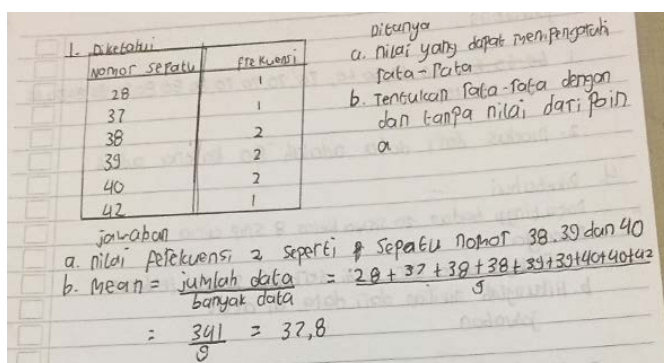 1. Diketahui
Nomor sepatu | frekuensi
28 | 1
37 | 1
38 | 2
39 | 2
40 | 2
42 | 1
Ditanya
a. nilai yang dapat mempengaruhi
rata-rata
b. Tentukan rata-rata dengan
dan tanpa nilai dari poin
a
jawaban
a. nilai perekuensi 2 seperti sepatu nomor 38.39 dan 40
b. Mean = jumlah data / banyak data = 28 + 37 + 38 + 38 + 39 + 39 + 40 + 40 + 42 / 9
= 341 / 9 = 37,8